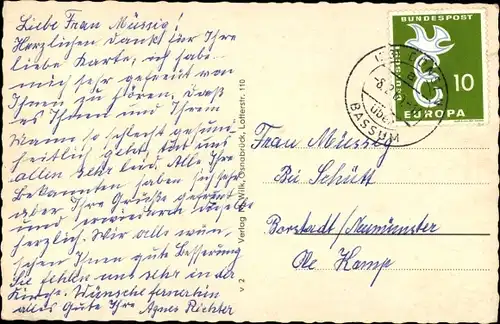 Liebe Frau Müssig!
Herzlichen Dank für Ihre
liebe Karte, ich habe
mich sehr gefreut von
Ihnen zu hören, daß
es Ihnen und Ihrem
Manne so schlecht gesund-
heitlich geht, tut uns
allen sehr leid. Alle Ihre
Bekannten haben sich sehr
über Ihre Grüße gefreut
und erwiedern dieselbe
herzlich. Wir alle wün-
schen Ihnen gute Besserung
Sie fehlen uns sehr in der
Kirche. Wünsche fernerhin
alles Gute Ihre Agnes Richter
Verlag W. Wilk, Osnabrück, Lotterstr. 110
V 2
DEUTSCHE BUNDESPOST
10
EUROPA
ÜBER
BASSUM
Frau Müssig
Bei Schütt
Borstadt/Neumünster
Oe Kamp